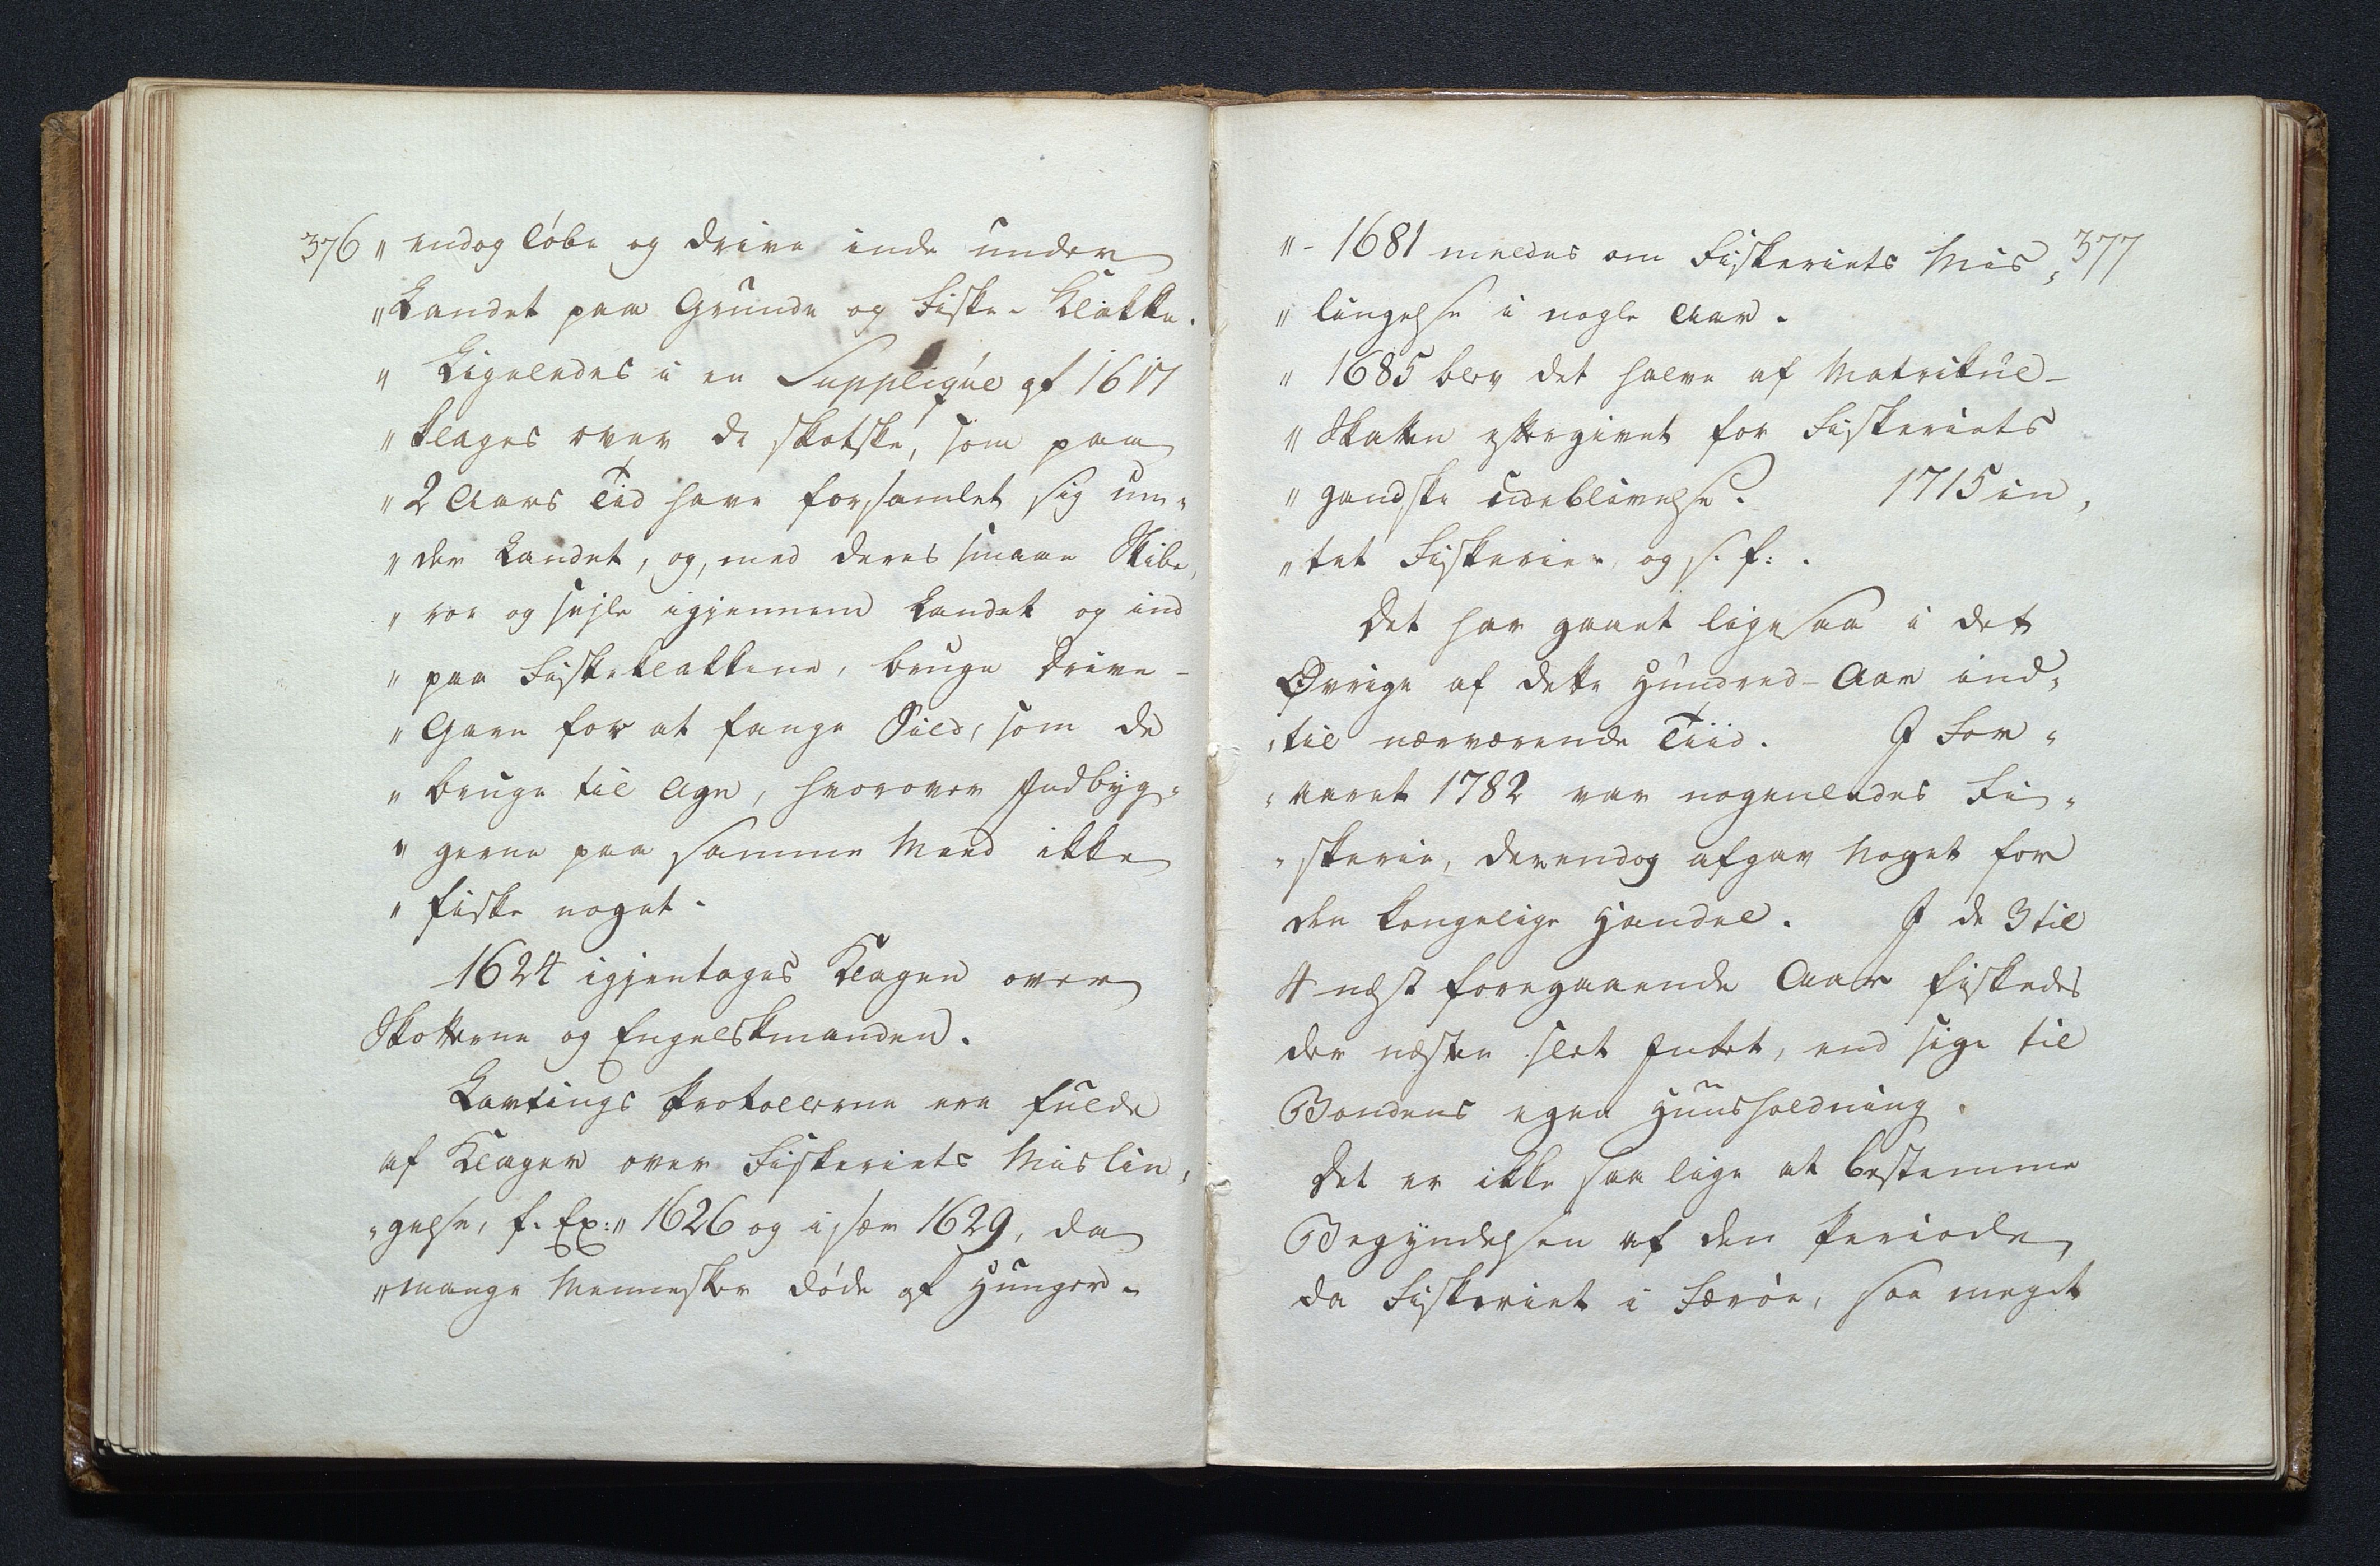 376 „ endog løbe og drive inde under
„ Landet paa Grunde og Fiske-Klakke.
„ Ligeledes i en Supplique af 1617
„ klages over de skotske, som paa
„ 2 Aars Tid have forsamlet sig un„
„ der Landet, og, med deres smaae Skibe,
„ roe og sejle igjennem Landet og ind
„ paa Fiskeklakkene, bruge Drive-
„ Garn for at fange Sild, som de
„ bruge til Agn, hvorover Indbyg„
„ gerne paa samme Meed ikke
„ fiske noget.
1624 igjentages Klagen over
Skotterne og Engelskmanden.
Lavtings Protocllerne ere fulde
af Klager over Fiskeriets Mislin„
„gelse, f. Ex: „ 1626 og især 1629, da
„ mange Mennesker døde af Hunger.
„ - 1681 meldes om Fiskeriets Mis„ 377
„ lingelse i nogle Aar.
„ 1685 blev det halve af Matrikul-
„ Skatten eftergivet for Fiskeriets
„ gandske Udeblivelse. 1715 in„
„ tet Fiskerie, og s. f: .
Det har gaaet ligesaa i det
Øvrige af dette Hundred-Aar ind„
„til nærværende Tiid. I For„
„aaret 1782 var nogenledes Fi„
„skerie, der endog afgav Noget for
den kongelige Handel. I de 3 til
4 næst foregaaende Aar fiskedes
der næsten slet Intet, end sige til
Bondens egen Huusholdning.
Det er ikke saa lige at bestemme
Begyndelsen af den Periode,
da Fiskeriet i Færøe, saa meget